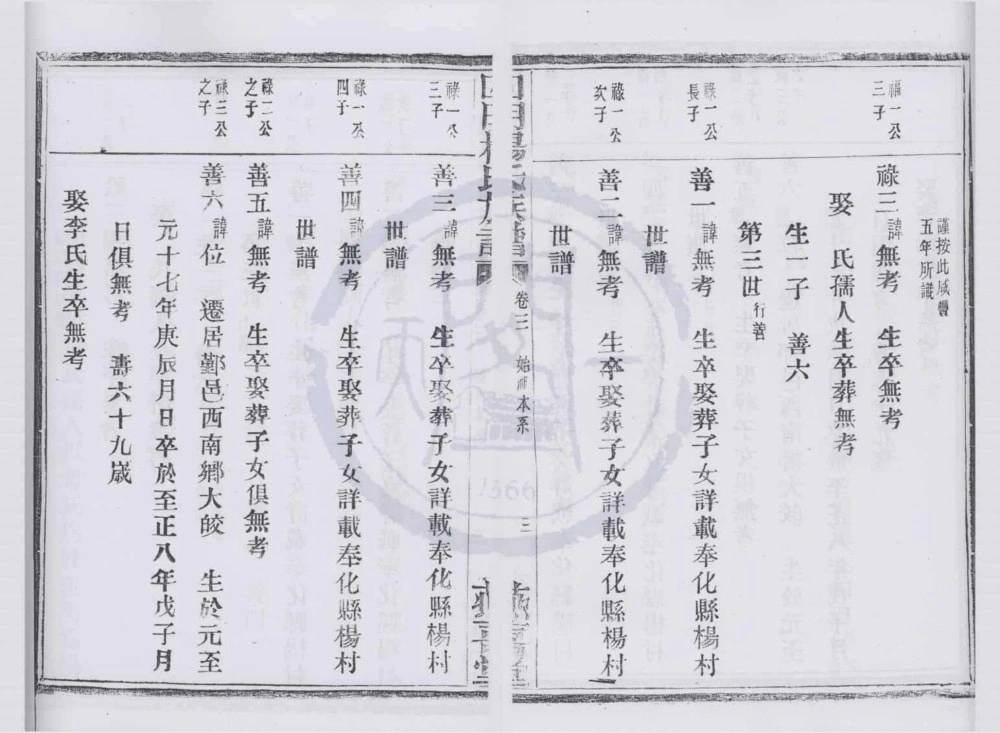 謹按此咸豐
五年所識
福一公
三子
祿三諱無考 生卒無考
娶 氏孺人生卒葬無考
生一子 善六
第三世行善
祿一公
長子
善一諱無考 生卒娶葬子女詳載奉化縣楊村
世譜
祿一公
次子
善二諱無考 生卒娶葬子女詳載奉化縣楊村
世譜
四明楊氏族譜 卷三 始祖本系 三
祿一公
三子
善三諱無考 生卒娶葬子女詳載奉化縣楊村
世譜
祿一公
四子
善四諱無考 生卒娶葬子女詳載奉化縣楊村
世譜
祿二公
之子
善五諱無考 生卒娶葬子女俱無考
祿三公
之子
善六諱位 遷居鄞邑西南鄉大皎 生於元至
元十七年庚辰月日卒於至正八年戊子月
日俱無考 壽六十九歲
娶李氏生卒無考
1566